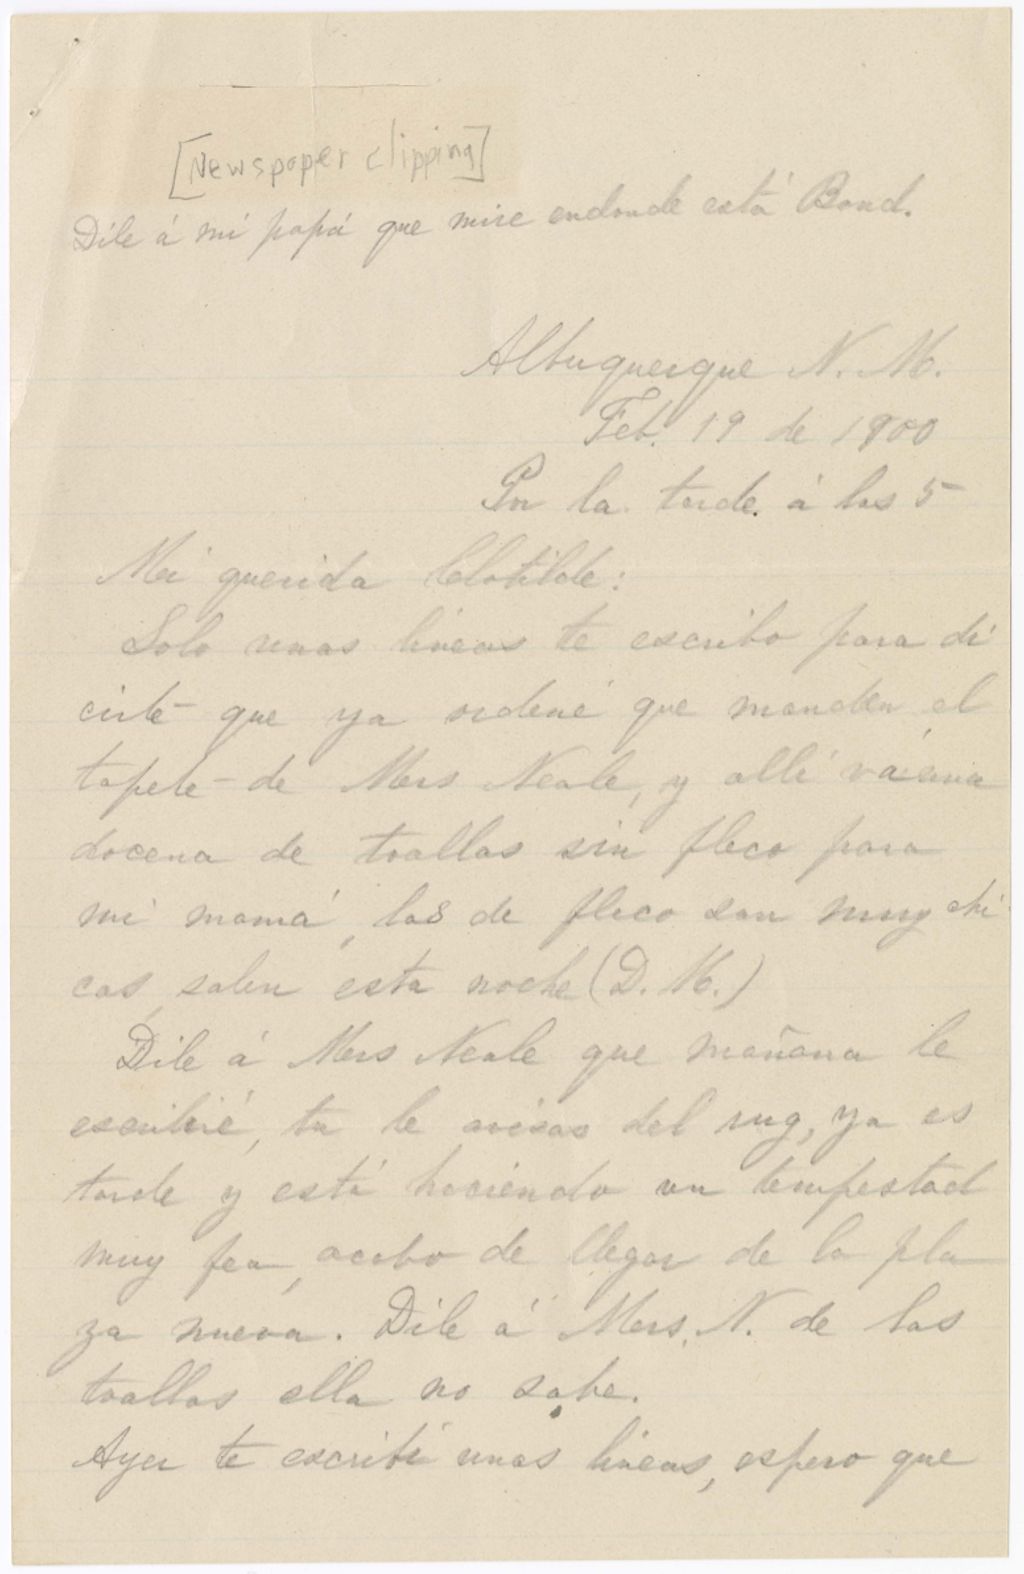 [Newspaper clipping]
Dile á mi papá que mire endonde está Bond.
Albuquerque N. M.
Feb. 19 de 1900
Por la tarde á las 5
Mi querida Clotilde:
Solo unas líneas te escribo para di
cirte que ya ordené que manden el
tapete de Mrs Neale, y allí vá una
docena de toallas sin fleco para
mi mamá, las de fleco son muy chi-
cas, salen esta noche (D. M.)
Dile á Mrs Neale que mañana le
escribiré, tu le avisas del rug, ya es
tarde y está haciendo un tempestad
muy fea, acabo de llegar de la pla
za nueva. Dile á Mrs. N. de las
toallas ella no sabe.
Ayer te escribí unas líneas, espero que